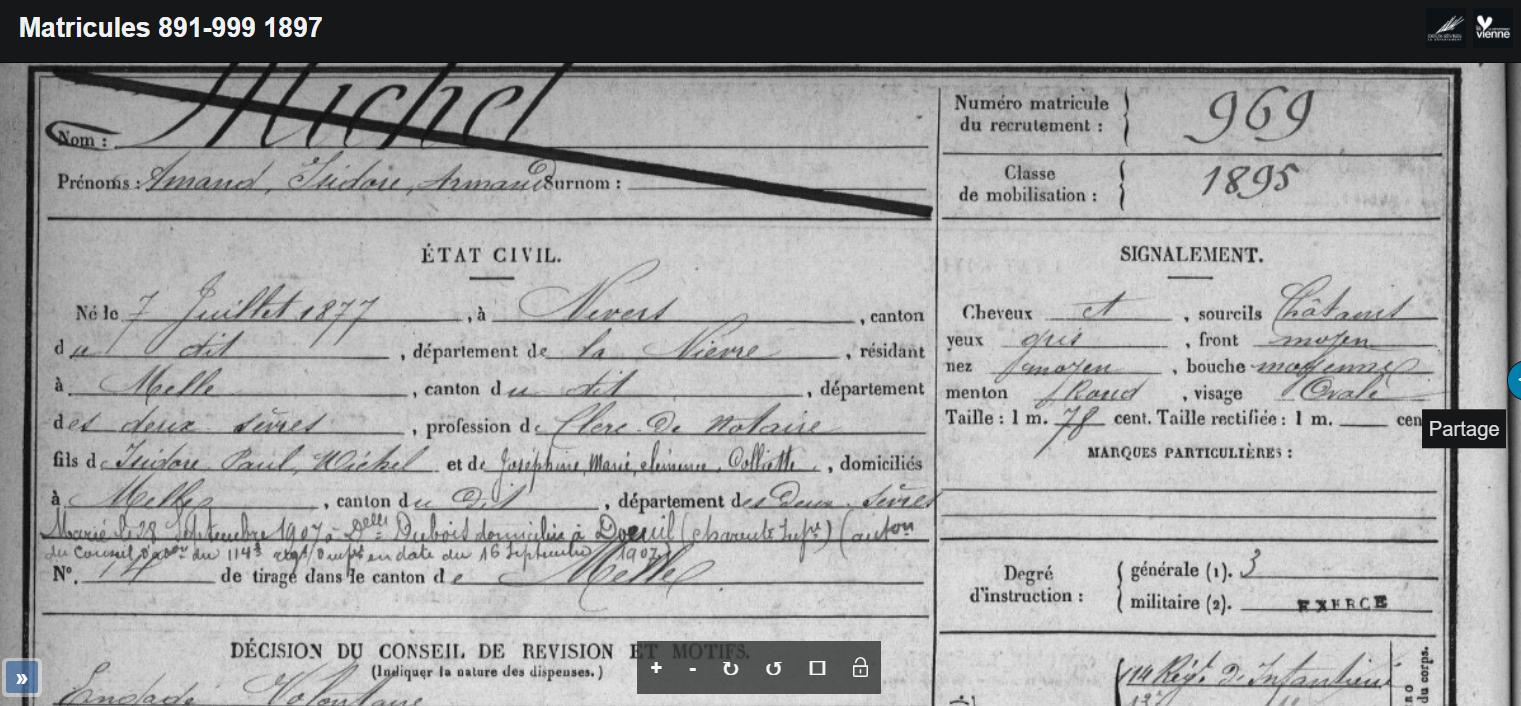 Matricules 891-999 1897
la vienne
Michel
Nom :
Prénoms : Amand, Isidore, Armand Surnom :
Numéro matricule du recrutement : 969
Classe de mobilisation : 1895
ÉTAT CIVIL.
Né le 7 Juillet 1877, à Nevers, canton
du dit, département de la Nièvre, résidant
à Melle, canton du dit, département
des deux sèvres, profession de Clerc de Notaire
fils d'Isidore Paul, Michel et de Joséphine, Marie, clémence, Colliette, domiciliés
à Melle, canton du Dit, département des Deux Sèvres
Marié le 28 Septembre 1907 à Delle Dubois domiciliée à Doeuil (charente Infre) (auton
du Conseil d'admon du 114e régt d'infie en date du 16 Septembre 1907)
N°. de tirage dans le canton de Melle
DÉCISION DU CONSEIL DE REVISION ET MOTIFS.
(Indiquer la nature des dispenses.)
Engagé Volontaire
SIGNALEMENT.
Cheveux et, sourcils Châtains
yeux gris, front moyen
nez moyen, bouche moyenne
menton Rond, visage Ovale
Taille : 1 m. 78 cent. Taille rectifiée : 1 m. cen
Partage
MARQUES PARTICULIÈRES :
Degré d'instruction :
générale (1). 3
militaire (2). EXERCÉ
114 Régt. d'Infanterie
du corps.